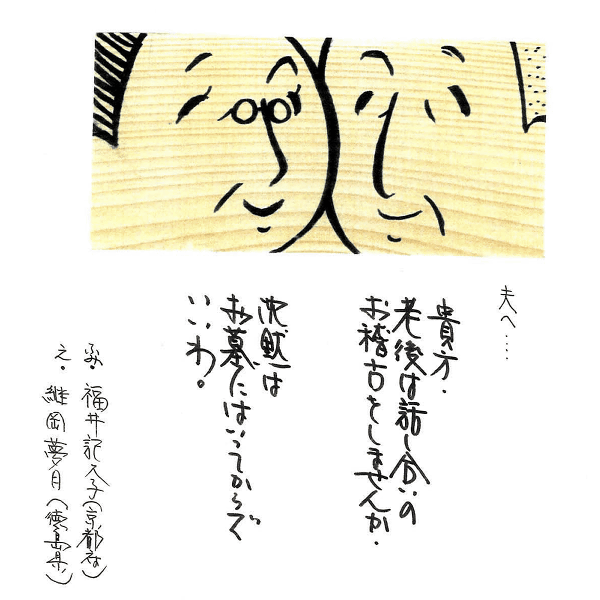 夫へ‥‥
貴方・
老後は話し合いの
お稽古をしませんか・
沈黙は
お墓にはいってからで
いいわ。
ふみ・福井記久子(京都府)
え・継岡夢月(徳島県)